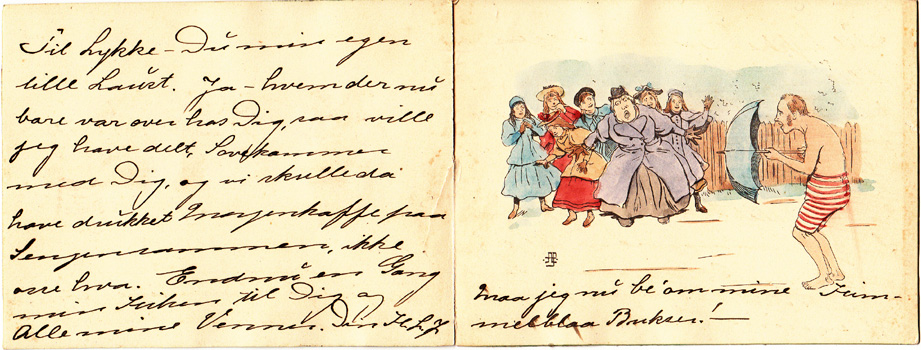 Til Lykke – Du min egen
lille Laust. Ja – hvem der nu
bare var over hos Dig, saa ville
jeg have delt, Sovekammer
med Dig, og vi skulle da
have drukket Morgenkaffe paa
Sengen sammen, ikke
hva. Endnu en Gang
min til Dig og
Alle mine Venner. Din
maa jeg nu be' om mine Him-
melblaa Bukser! –